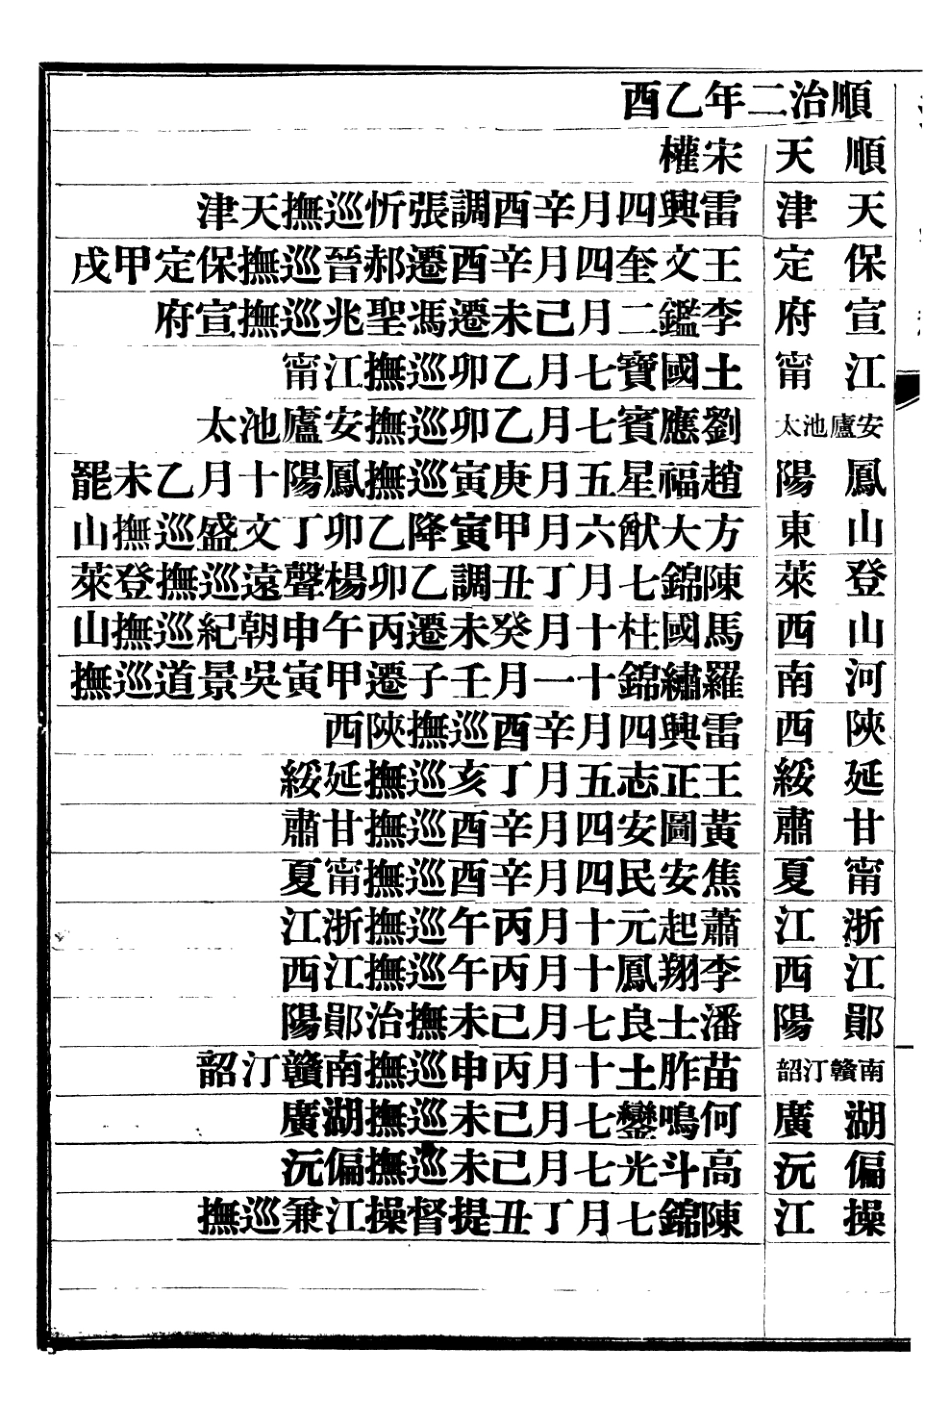 順治二年乙酉
順天 宋權
天津 雷興四月辛酉調張忻巡撫天津
保定 王文奎四月辛酉遷郝晉巡撫保定甲戌
宣府 李鑑二月己未遷馮聖兆巡撫宣府
江甯 土國寶七月乙卯巡撫江甯
安廬池太 劉應賓七月乙卯巡撫安廬池太
鳳陽 趙福星五月庚寅巡撫鳳陽十月乙未罷
山東 方大猷六月甲寅降乙卯丁文盛巡撫山
登萊 陳錦七月丁丑調乙卯楊聲遠巡撫登萊
山西 馬國柱十月癸未遷丙午申朝紀巡撫山
河南 羅繡錦十一月壬子遷甲寅吳景道巡撫
陝西 雷興四月辛酉巡撫陝西
延綏 王正志五月丁亥巡撫延綏
甘肅 黃圖安四月辛酉巡撫甘肅
甯夏 焦安民四月辛酉巡撫甯夏
浙江 蕭起元十月丙午巡撫浙江
江西 李翔鳳十月丙午巡撫江西
鄖陽 潘士良七月己未撫治鄖陽
南贛汀韶 苗胙土十月丙申巡撫南贛汀韶
湖廣 何鳴鑾七月己未巡撫湖廣
偏沅 高斗光七月己未巡撫偏沅
操江 陳錦七月丁丑提督操江兼巡撫